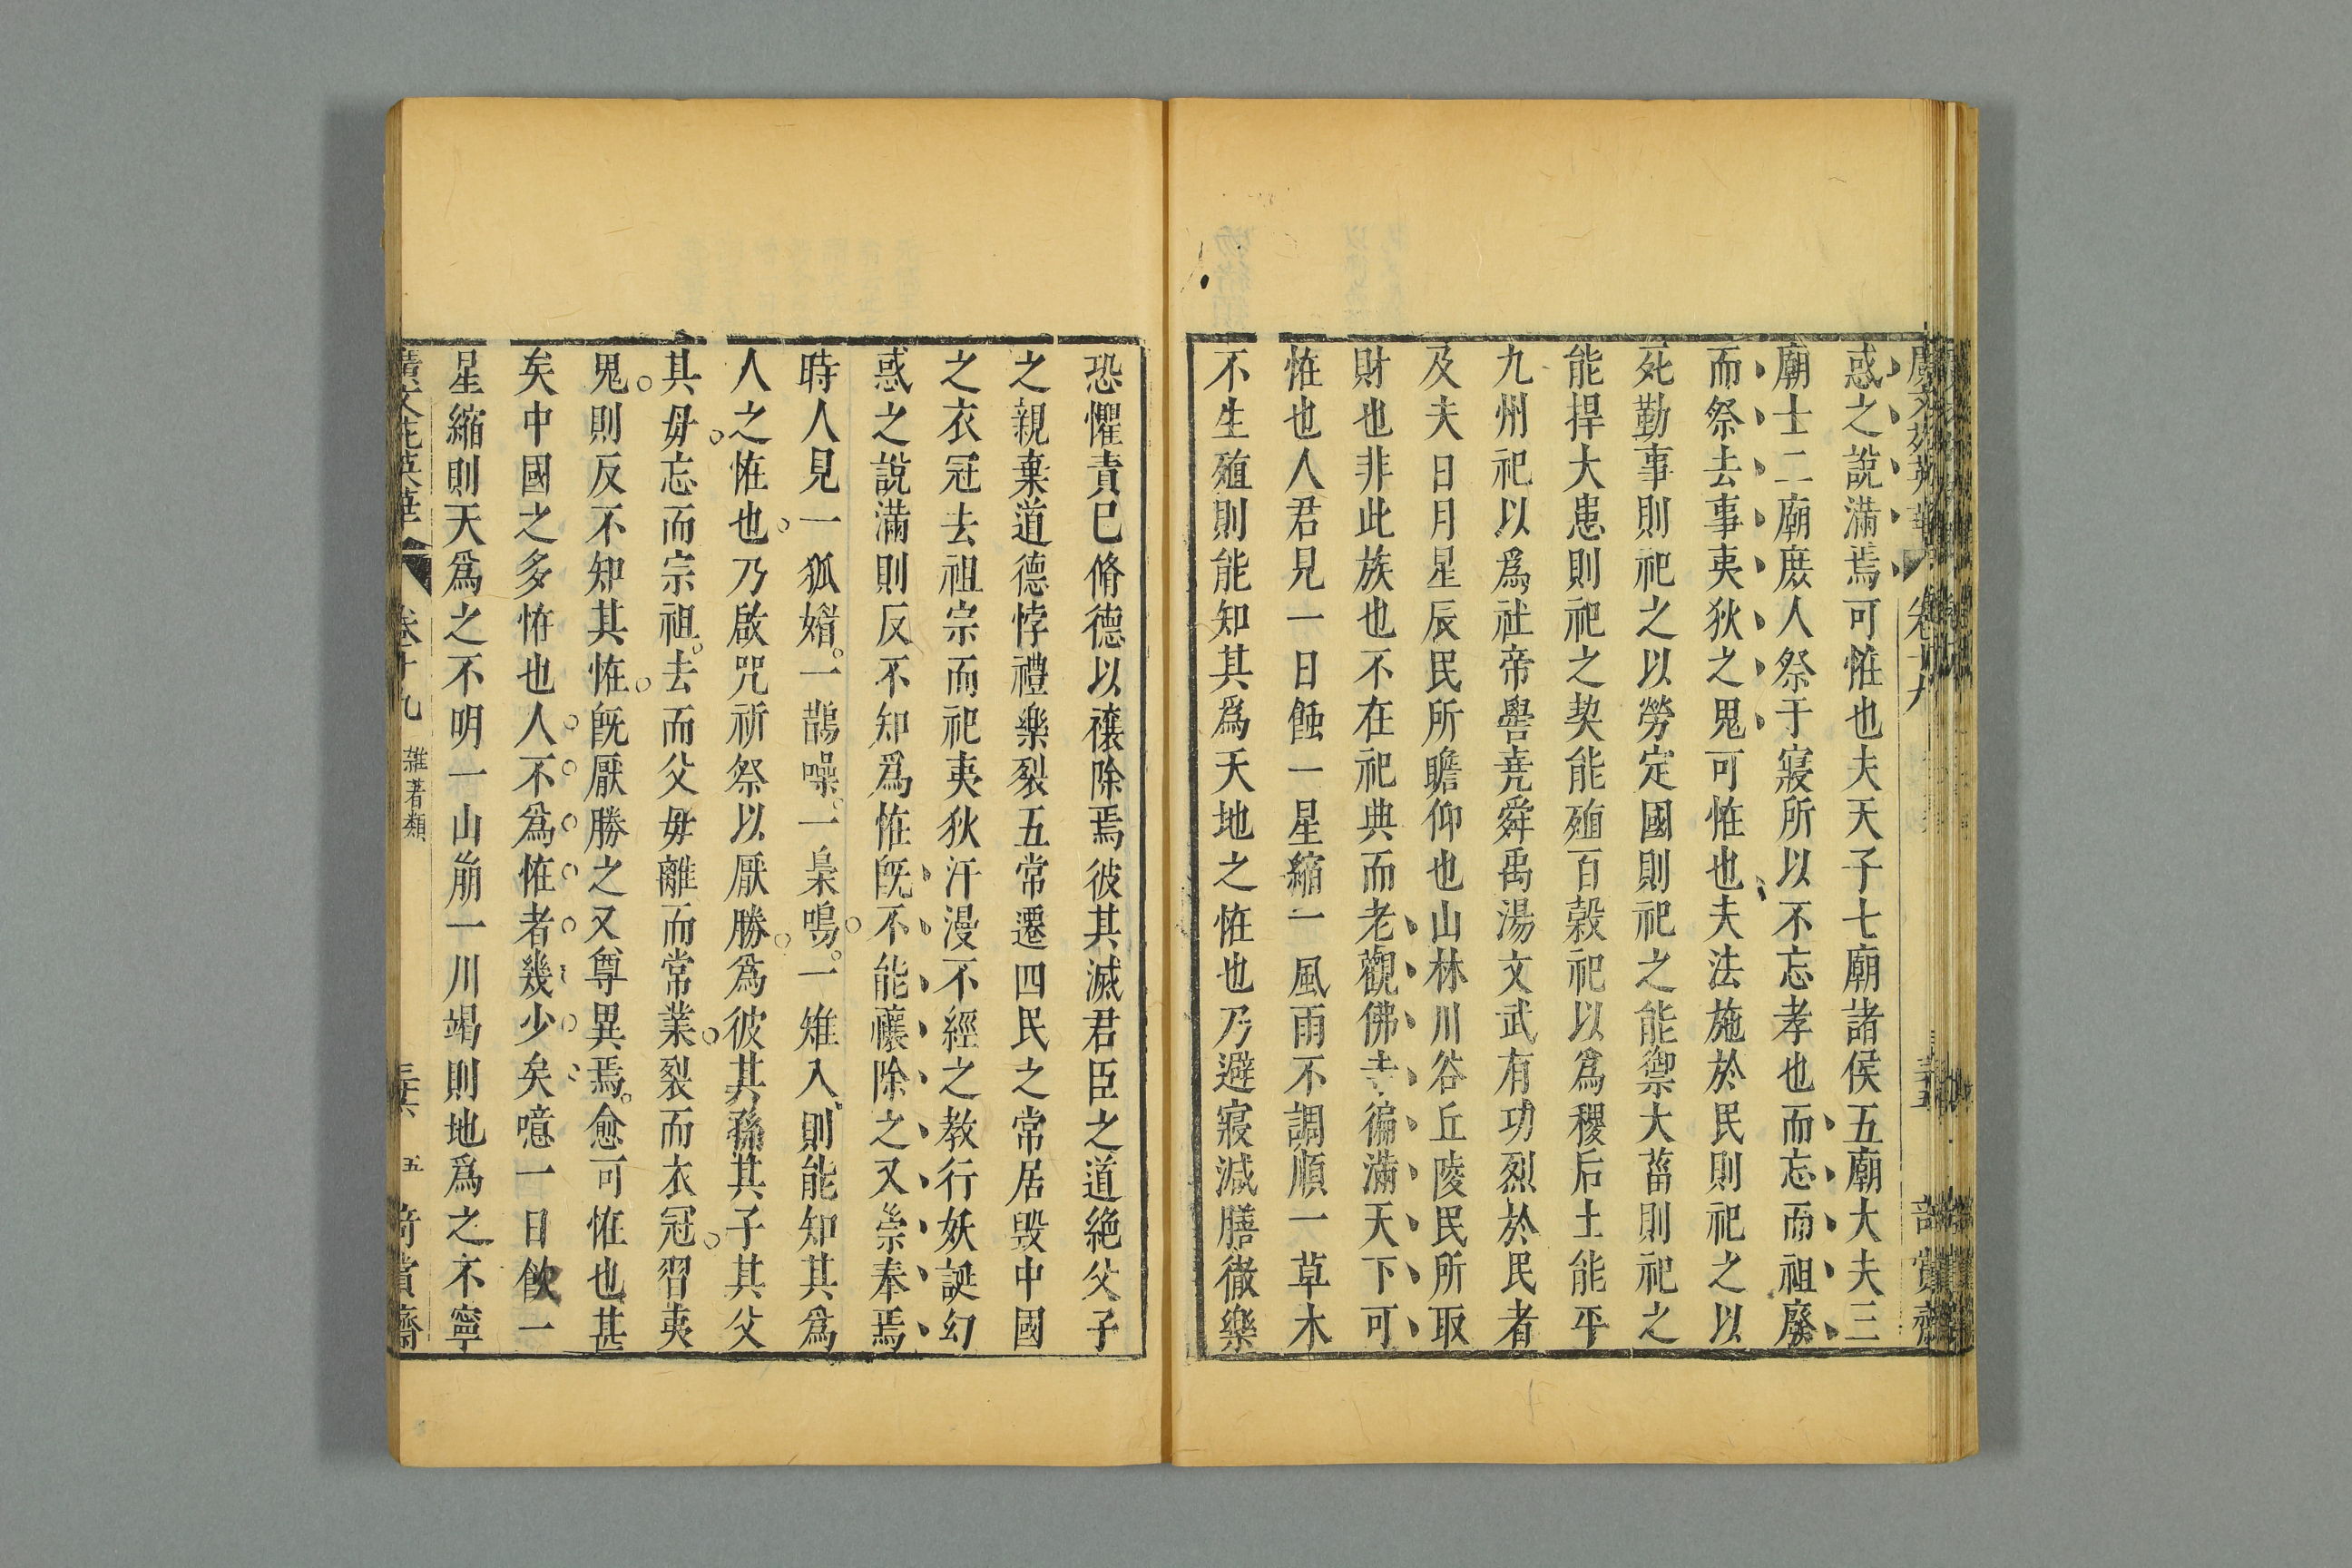 惑之說滿焉可恠也夫天子七廟諸侯五廟大夫三
廟士二廟庶人祭于寢所以不忘孝也而忘而祖廢
而祭去事夷狄之鬼可恠也夫法施於民則祀之以
死勤事則祀之以勞定國則祀之能禦大菑則祀之
能捍大患則祀之契能殖百穀祀以爲稷后土能平
九州祀以爲社帝嚳堯舜禹湯文武有功烈於民者
及夫日月星辰民所瞻仰也山林川谷丘陵民所取
財也非此族也不在祀典而老觀佛寺徧滿天下可
恠也人君見一日蝕一星縮一風雨不調順一草木
不生殖則能知其爲天地之恠也乃避寢減膳徹樂
恐懼責已脩德以禳除焉彼其滅君臣之道絶父子
之親棄道德悖禮樂裂五常遷四民之常居毀中國
之衣冠去祖宗而祀夷狄汗漫不經之教行妖誕幻
惑之說滿則反不知爲恠旣不能禳除之又崇奉焉
時人見一狐媚一鵲噪一梟鳴一雉入則能知其爲
人之恠也乃啟咒祈祭以厭勝爲彼其孫其子其父
其毋忘而宗祖去而父毋離而常業裂而衣冠習夷
鬼則反不知其恠旣厭勝之又尊異焉愈可恠也甚
矣中國之多恠也人不爲恠者幾少矣噫一日飲一
星縮則天爲之不明一山崩一川竭則地爲之不寧
廣文苑英華 卷十九 雜著類 五